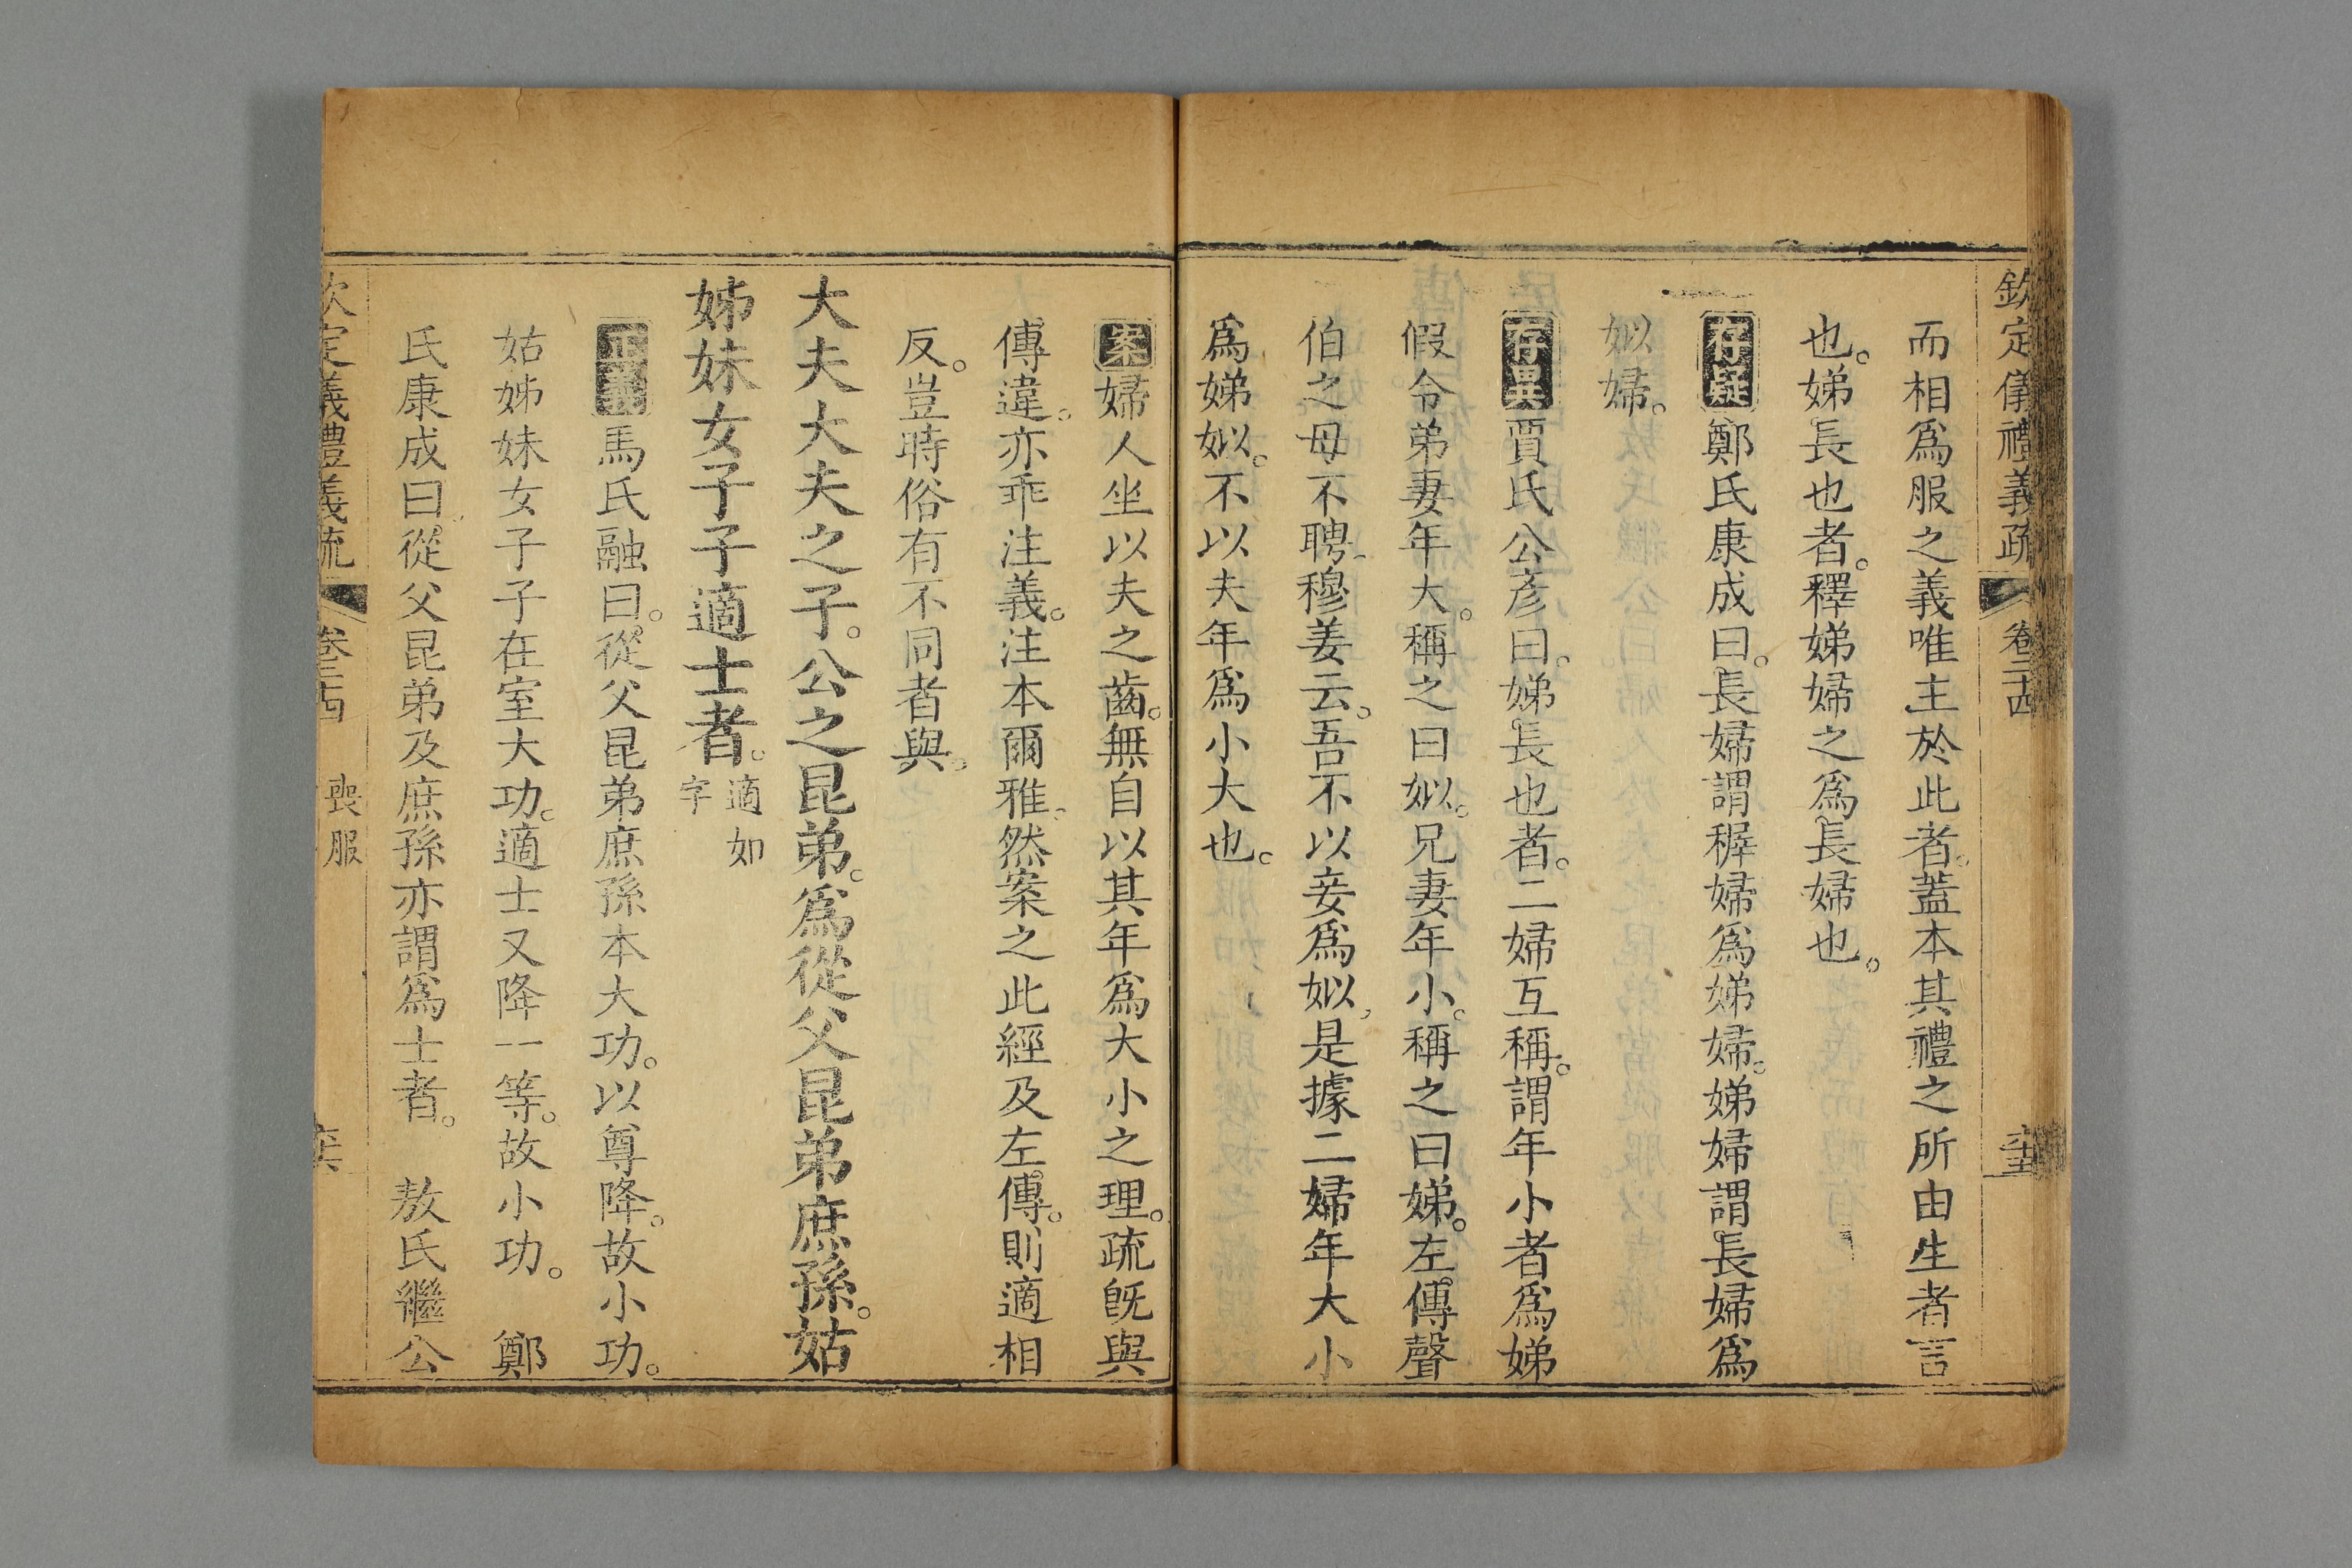 欽定儀禮義疏 卷二十四
而相爲服之義唯主於此者。蓋本其禮之所由生者言
也。娣長也者。釋娣婦之爲長婦也。
存疑 鄭氏康成曰。長婦謂穉婦爲娣婦。娣婦謂長婦爲
姒婦。
存異 賈氏公彥曰。娣長也者。二婦互稱。謂年小者爲娣
假令弟妻年大。稱之曰姒。兄妻年小。稱之曰娣。左傳聲
伯之母不聘。穆姜云。吾不以妾爲姒。是據二婦年大小
爲娣姒。不以夫年爲小大也。
案 婦人坐以夫之齒。無自以其年爲大小之理。疏旣與
傳違。亦乖注義。注本爾雅。然案之此經及左傳。則適相
反。豈時俗有不同者與。
大夫大夫之子。公之昆弟。爲從父昆弟庶孫。姑
姊妹女子子適士者。適如字
正義 馬氏融曰。從父昆弟庶孫本大功。以尊降。故小功。
姑姊妹女子子在室大功。適士又降一等。故小功。 鄭
氏康成曰。從父昆弟及庶孫亦謂爲士者。 敖氏繼公
欽定儀禮義疏 卷二十四 喪服